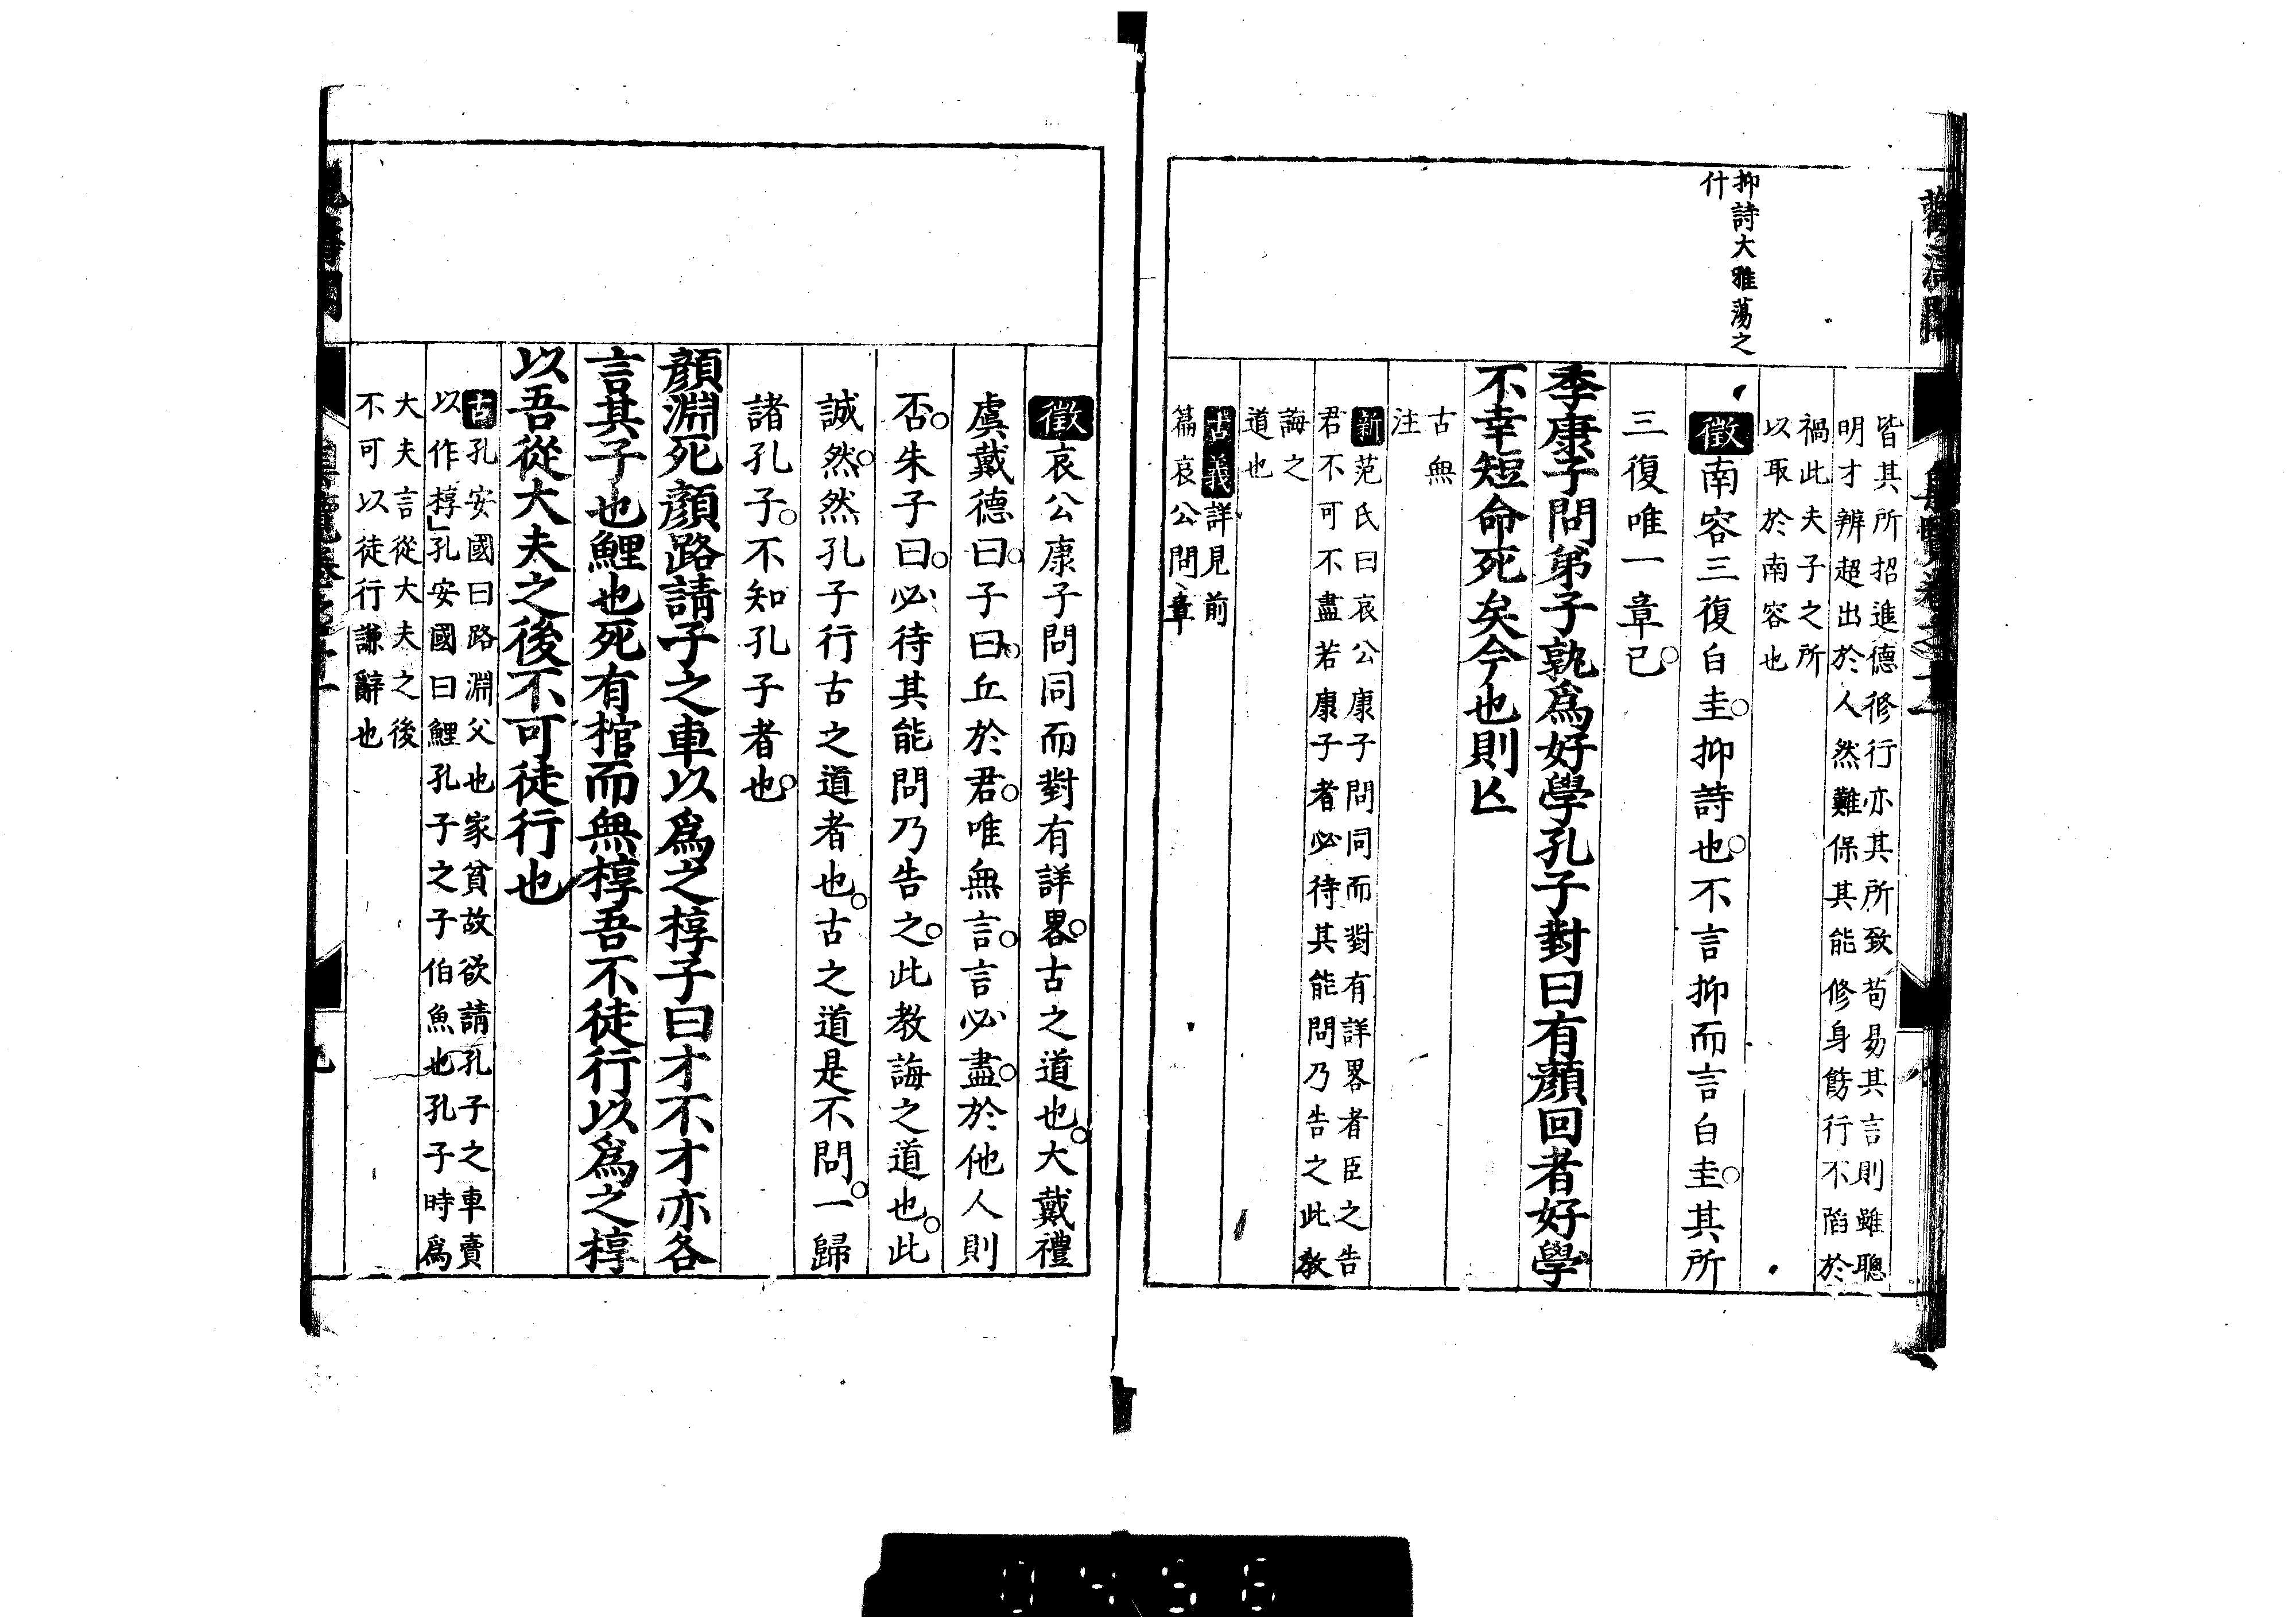 抑詩大雅蕩之
什
皆其所招進德修行亦其所致苟易其言則雖聰
明才辨超出於人然難保其能修身飭行不陷於
禍此夫子之所
以取於南容也
徵南容三復白圭抑詩也不言抑而言白圭其所
三復唯一章已
季康子問弟子孰爲好學孔子對曰有顏回者好學
不幸短命死矣今也則亾
古無
注
新范氏曰哀公康子問同而對有詳畧者臣之告
君不可不盡若康子者必待其能問乃告之此敎
誨之
道也
古義詳見前
篇哀公問章
徵哀公康子問同而對有詳畧古之道也大戴禮
虞戴德曰子曰丘於君唯無言言必盡於他人則
否朱子曰必待其能問乃告之此教誨之道也此
誠然然孔子行古之道者也古之道是不問一歸
諸孔子不知孔子者也
顏淵死顏路請子之車以爲之椁子曰才不才亦各
言其子也鯉也死有棺而無椁吾不徒行以爲之椁
以吾從大夫之後不可徒行也
古孔安國曰路淵父也家貧故欲請孔子之車賣
以作椁」孔安國曰鯉孔子之子伯魚也孔子時爲
大夫言從大夫之後
不可以徒行謙辭也